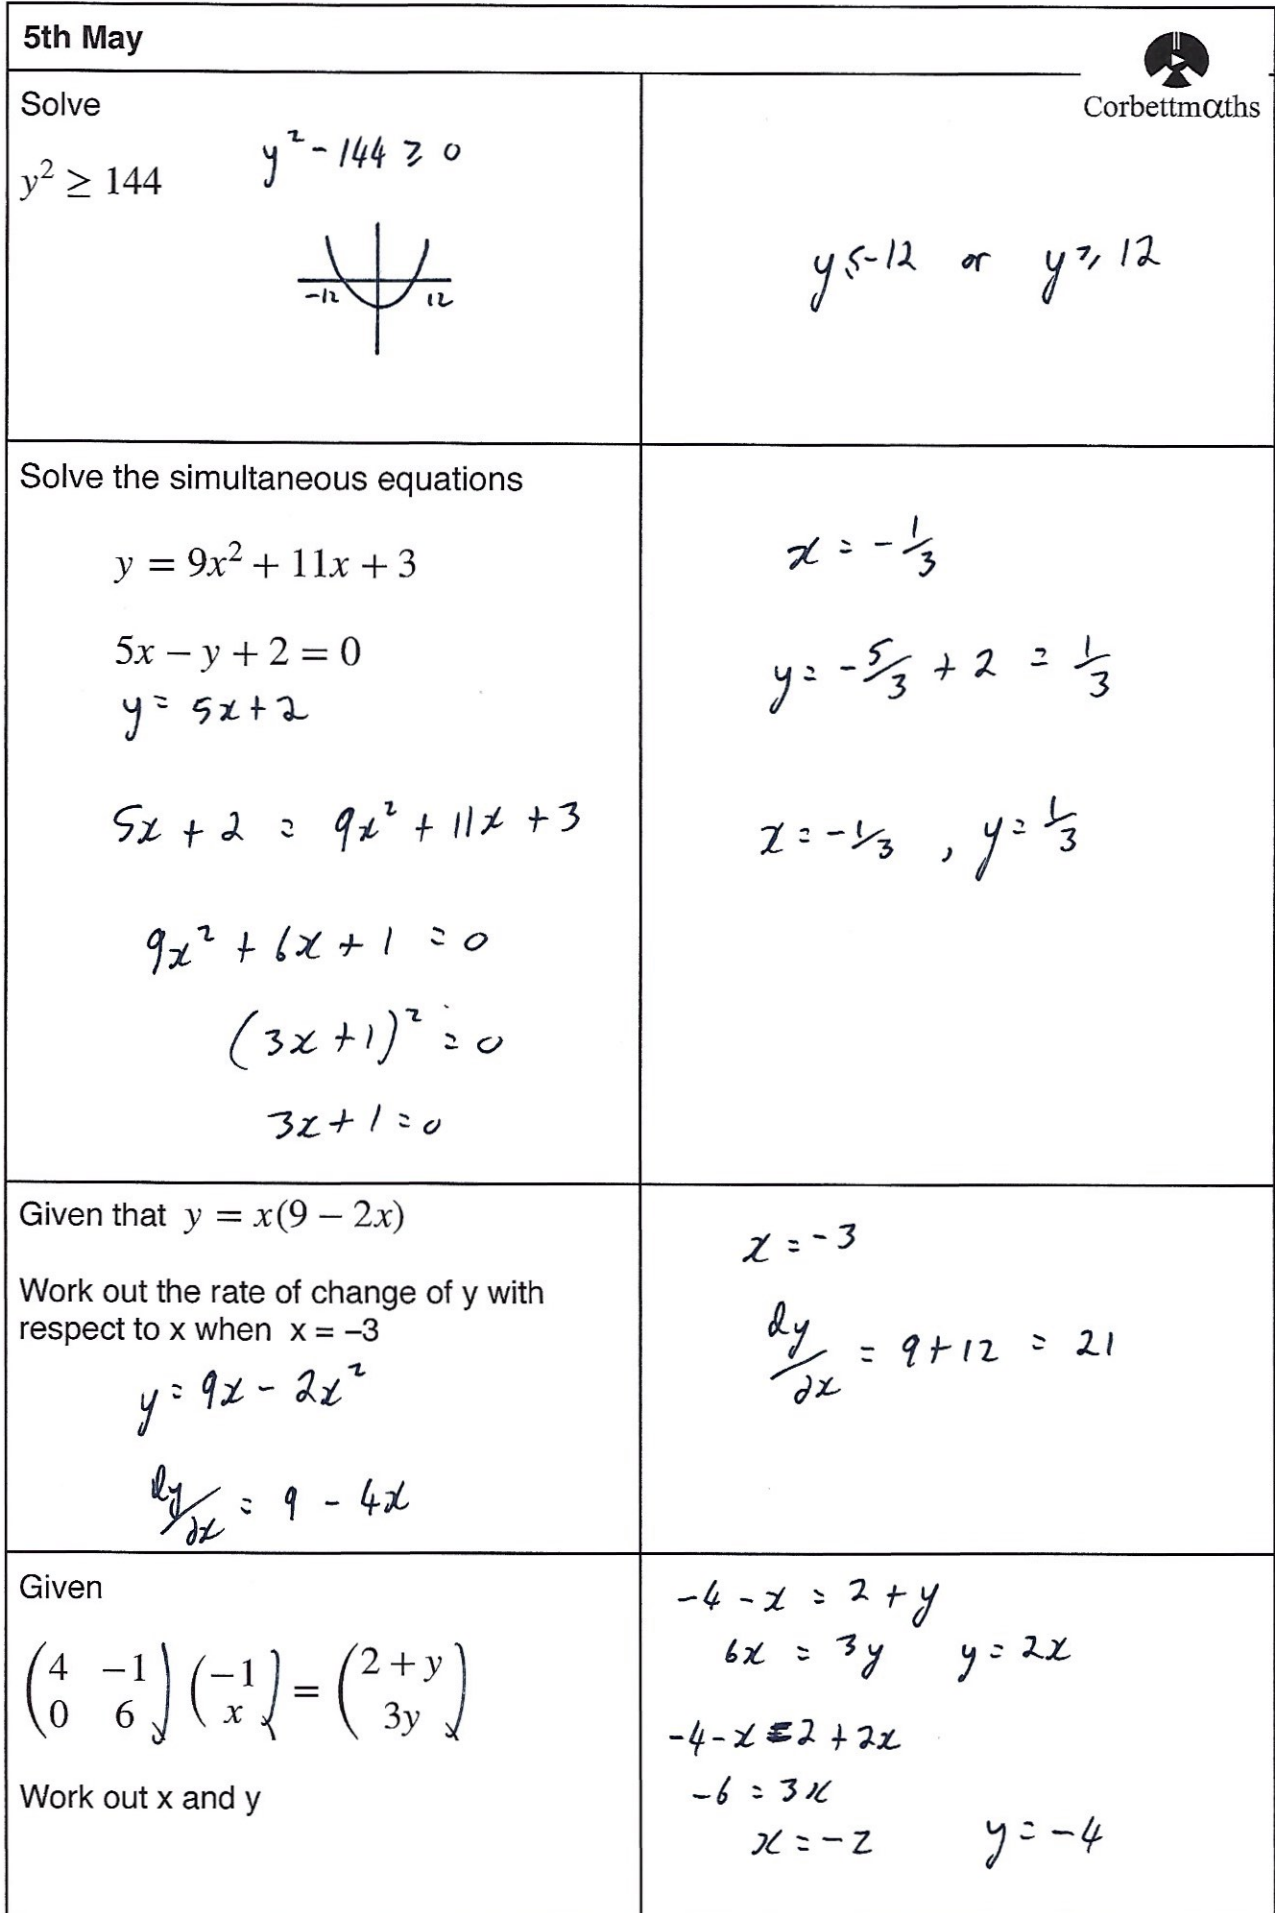 5th May
Corbettmαths
Solve
y² ≥ 144
y² - 144 ≥ 0
-12 12
y ≤ -12 or y ≥ 12
Solve the simultaneous equations
y = 9x² + 11x + 3
5x − y + 2 = 0
y = 5x + 2
5x + 2 = 9x² + 11x + 3
9x² + 6x + 1 = 0
(3x + 1)² = 0
3x + 1 = 0
x = -1/3
y = -5/3 + 2 = 1/3
x = -1/3 , y = 1/3
Given that y = x(9 − 2x)
Work out the rate of change of y with
respect to x when x = −3
y = 9x - 2x²
dy/dx = 9 - 4x
x = -3
dy/dx = 9 + 12 = 21
Given
(4 −1) (−1) = (2 + y)
(0 6) (x) (3y)
Work out x and y
-4 - x = 2 + y
6x = 3y y = 2x
-4 - x = 2 + 2x
-6 = 3x
x = -2 y = -4